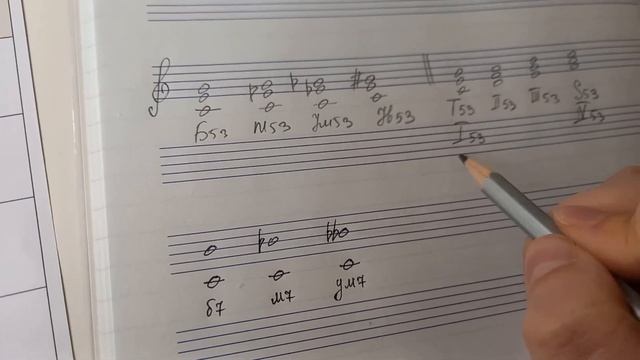 Б53 м53 Ум53 Ув53 T53 II53 III53 S53
I53 IV53
б7 м7 ум7